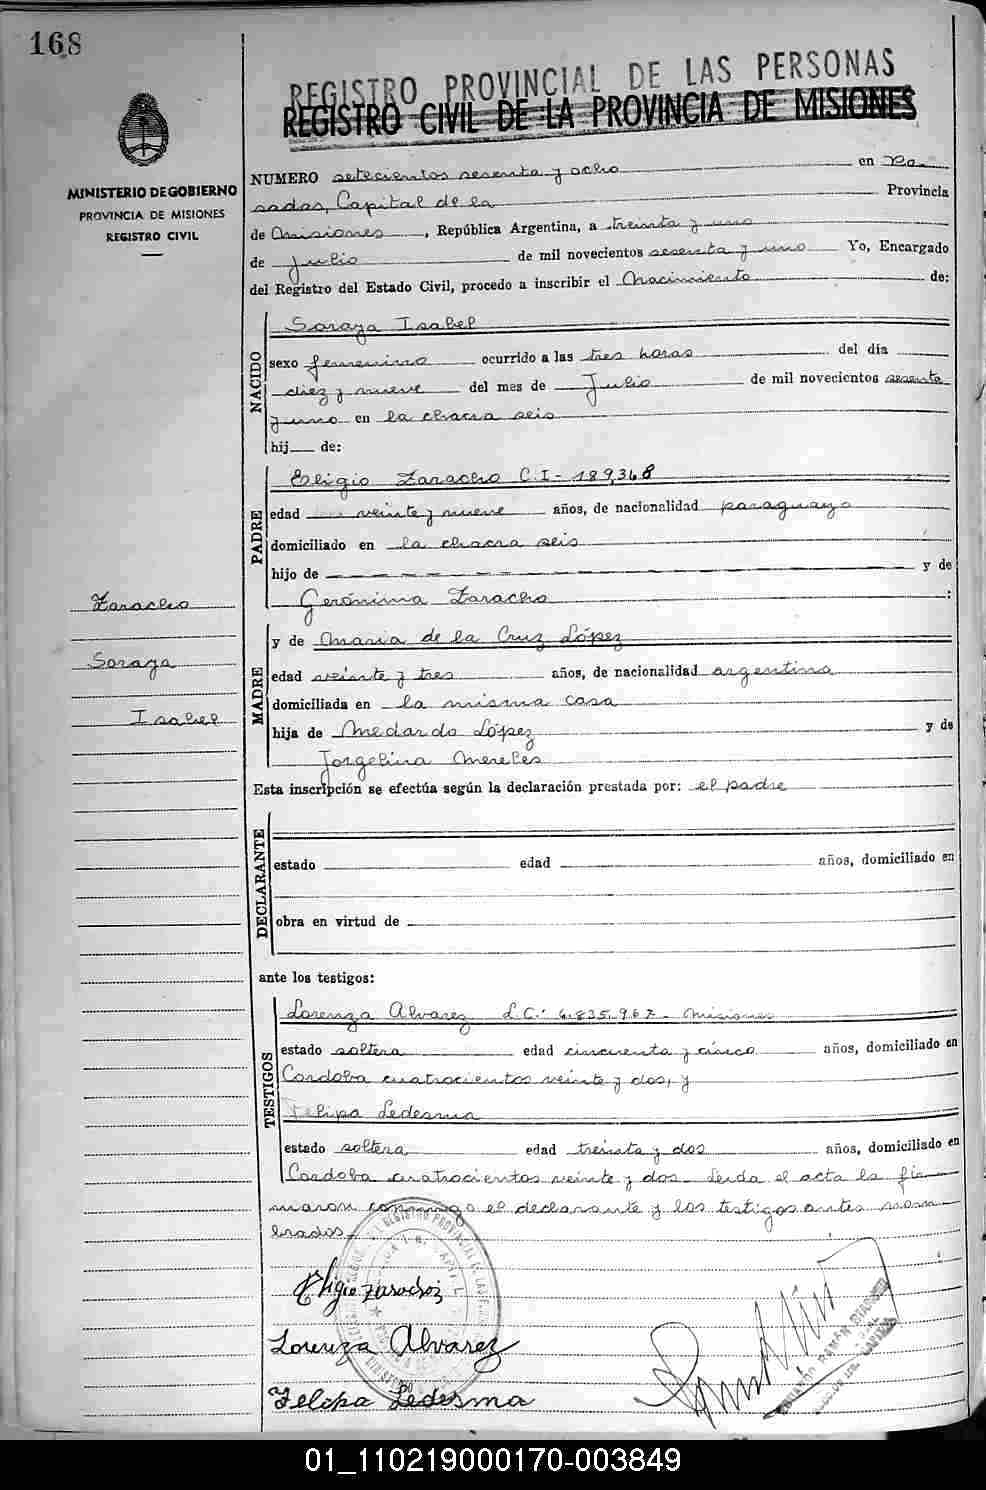 168
REGISTRO PROVINCIAL DE LAS PERSONAS
REGISTRO CIVIL DE LA PROVINCIA DE MISIONES
MINISTERIO DE GOBIERNO
PROVINCIA DE MISIONES
REGISTRO CIVIL
NUMERO setecientos sesenta y ocho en Po-
sadas, Capital de la Provincia
de Misiones, República Argentina, a treinta y uno
de Julio de mil novecientos sesenta y uno Yo, Encargado
del Registro del Estado Civil, procedo a inscribir el Nacimiento de:
NACIDO
Soraya Isabel
sexo femenino ocurrido a las tres horas del día
diez y nueve del mes de Julio de mil novecientos sesenta
y uno en la chacra seis
hij de:
PADRE
Eligio Zaracho C.I- 189,368
edad veinte y nueve años, de nacionalidad paraguaya
domiciliado en la chacra seis
hijo de y de
Gerónima Zaracho :
Zaracho
Soraya
Isabel
MADRE
y de Maria de la Cruz López
edad veinte y tres años, de nacionalidad argentina
domiciliada en la misma casa
hija de Medardo López y de
Jorgelina Mereles
Esta inscripción se efectúa según la declaración prestada por: el padre
DECLARANTE
estado edad años, domiciliado en
obra en virtud de
ante los testigos:
TESTIGOS
Lorenza Alvarez L.C: 6.835.967- Misiones
estado soltera edad cincuenta y cinco años, domiciliado en
Cordoba cuatrocientos veinte y dos, y
Felipa Ledesma
estado soltera edad treinta y dos años, domiciliado en
Cordoba cuatrocientos veinte y dos. Leida el acta la fir-
maron conmigo el declarante y los testigos antes nom
brados.
Eligio Zaracho
Lorenza Alvarez
Felipa Ledesma
01_110219000170-003849